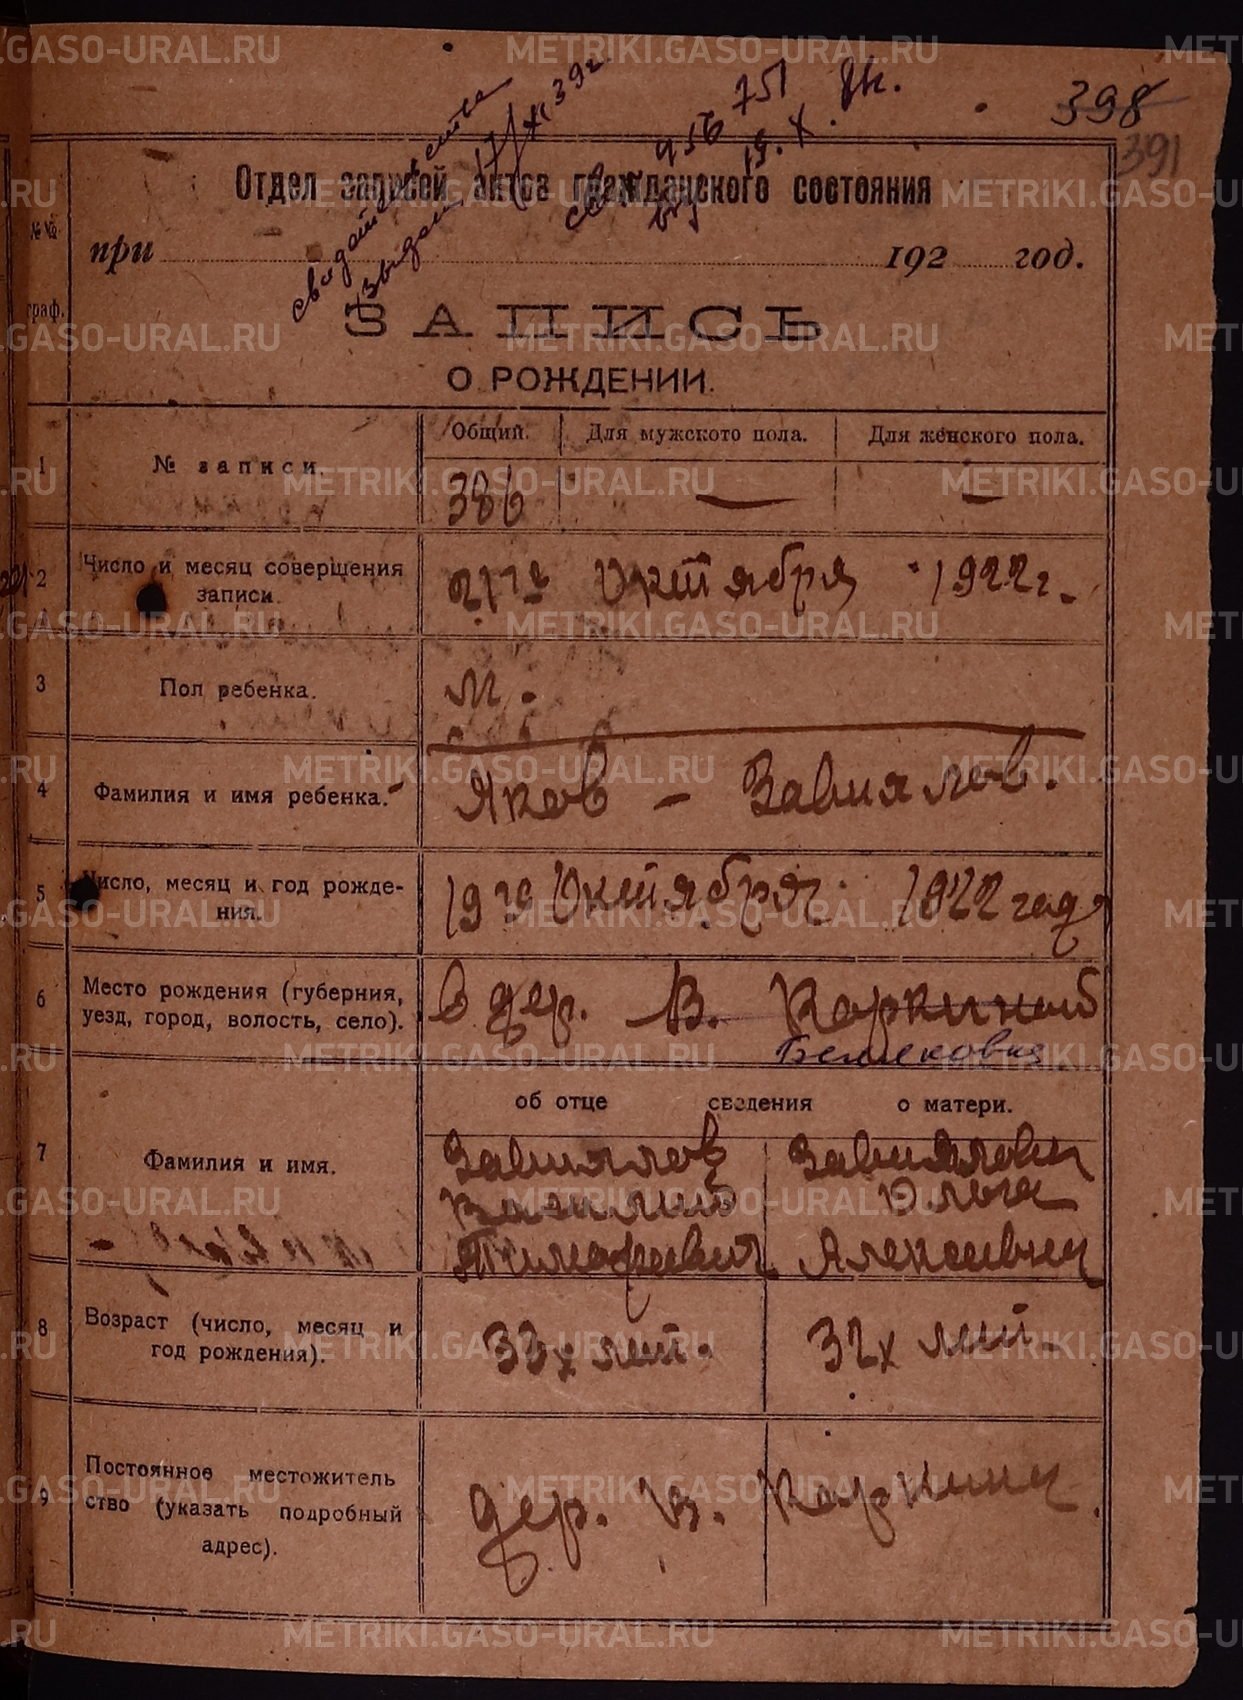 398
391
свидетельство
выдано 17/XI 39 г.
956 751
19. X.
Отдел записей актов гражданского состояния
№№
граф.
при 192 год.
ЗАПИСЬ
О РОЖДЕНИИ.
1 № записи. Общий. Для мужского пола. Для женского пола.
386 — —
2 Число и месяц совершения
записи.
21го Октября 1922 г.
3 Пол ребенка. М.
4 Фамилия и имя ребенка. Яков — Завиялов.
5 Число, месяц и год рожде-
ния.
19го Октября 1922 года
6 Место рождения (губерния,
уезд, город, волость, село).
В дер. В. Каркиной
об отце сведения о матери.
7 Фамилия и имя.
Завиялов Завиялова
Василий Ольга
Тимофеевич Алексеевна
8 Возраст (число, месяц и
год рождения).
33х лет. 32х лет.
9 Постоянное местожитель
ство (указать подробный
адрес).
дер. В. Каркина
METRIKI.GASO-URAL.RU